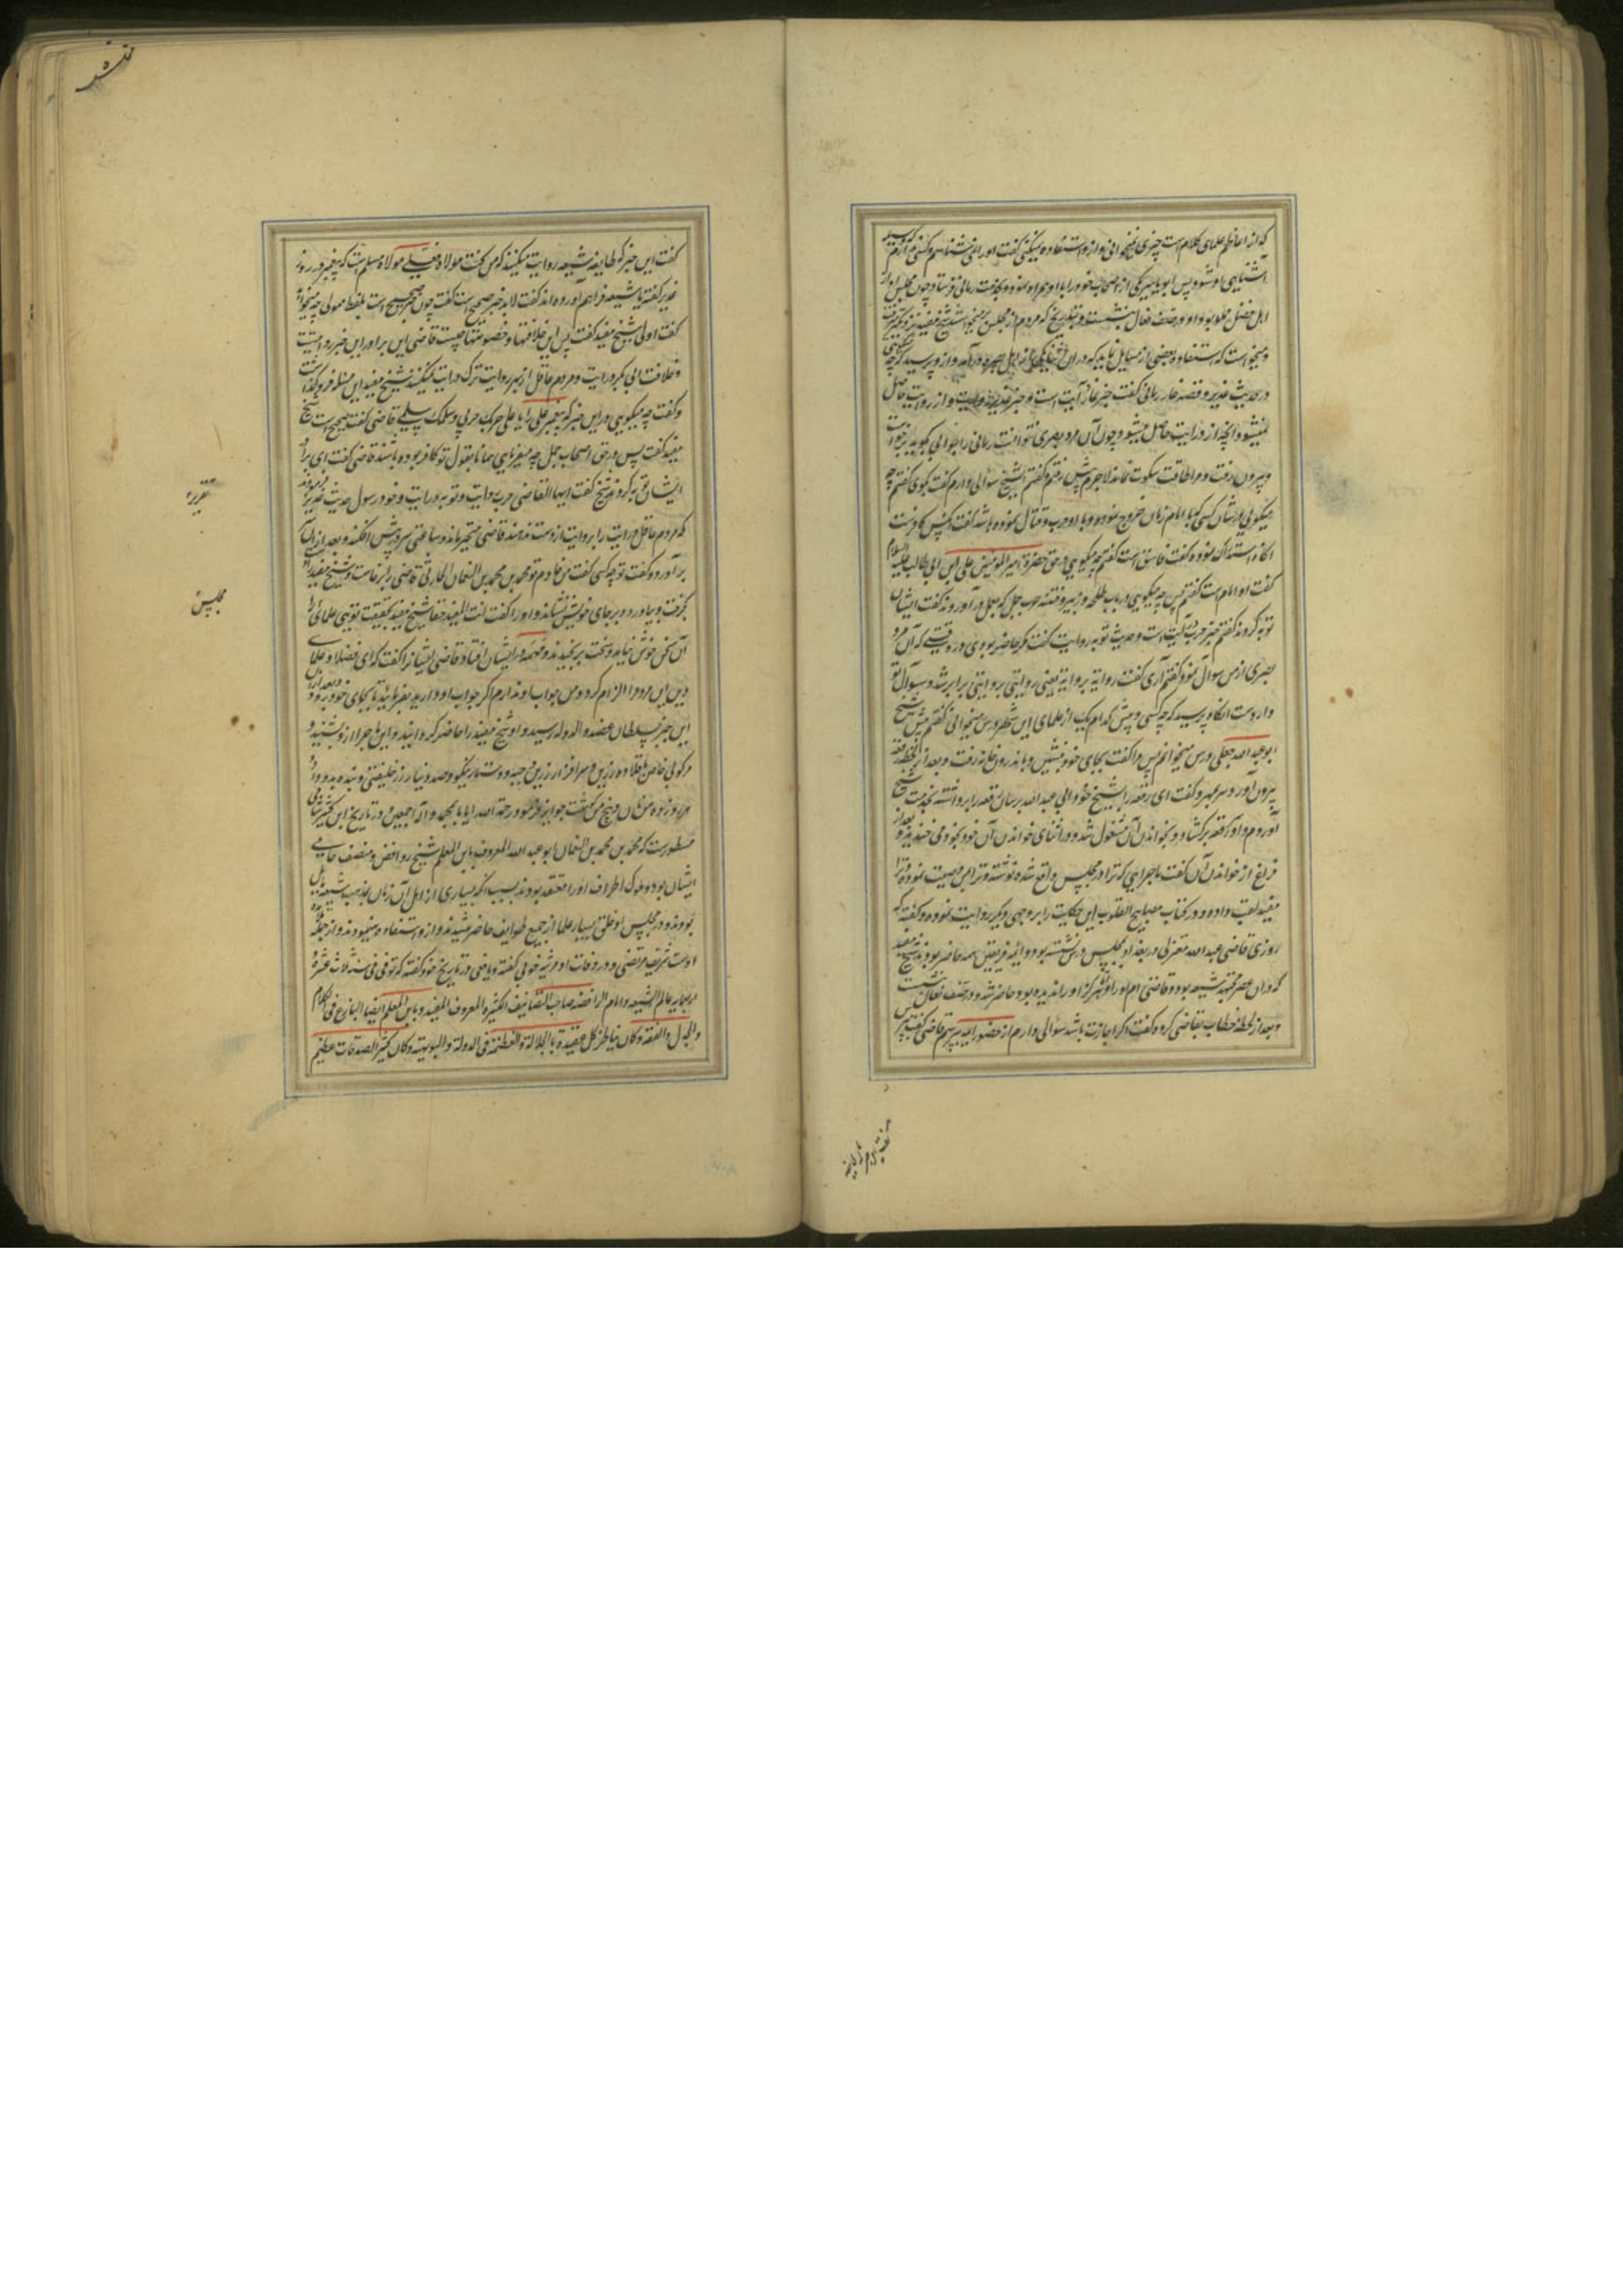 که از اعاظم علمای کلام است چیزی نمیخوانی و از و استفاده نمیکنی گفت اورا نمی شناسم و کسی
آشنایی او شود پس ابو یاسر یکی از اصحاب خود را با او همراه نموده بخدمت رمانی فرستاد و چون مجلس او از
اهل فضل مملو بود او در صف نعال بنشست و بتدریج که مردم از مجلس بر میخواستند شیخ مفید نزدیکتر میرفت
و میخواست که استفاده بعضی از مسایل نماید که در ان اثنا یکی از اهل بصره در آمد و از و پرسید که چه میگویی
در حدیث غدیر و قصه غار رمانی گفت خبر غار درایت است و خبر غدیر روایت و از روایت حاصل
نمیشود آنچه از درایت حاصل میشود و چون آن مرد بصری نتوانست رمانی را جوابی بگوید برخواست
و بیرون رفت و مرا طاقت سکوت نماند لاجرم پیش رفتم و گفتم ایشیخ سؤالی دارم گفت بگوی گفتم چه
میگویی در شان کسی که با امام زمان خروج نموده و با او حرب و قتال نموده باشد گفت آنکس کافرست
انگاه استدراک نموده گفت فاسق است گفتم چه میگویی در حق حضرة امیر المومنین علی ابن ابی طالب علیه السلام
گفت او امام است گفتم پس چه میگویی در باب طلحه و زبیر و فتنه حرب جمل که بعمل در آوردند گفت ایشان
توبه کردند گفتم خبر حرب درایت است و حدیث توبه روایت گفت مگر حاضر بودی در وقتیکه آن مرد
بصری از من سوال نمود گفتم آری گفت روایة بروایة یعنی روایتی بروایتی برابر شد و سؤال تو
واردست انگاه پرسید که چه کسی و پیش کدام یک از علمای این شهر درس میخوانی گفتم پیش شیخ
ابو عبد الله جعلی درس میخوانم پس مرا گفت بجای خود بنشین و باندرون خانه رفت و بعد از لحظه رقعه
بیرون آورد سر بمهر و گفت ای رقعه را بشیخ خود ابی عبد الله برسان رقعه را برداشته بخدمت شیخ
آوردم و او رقعه بر گشاد و بخواندن آن مشغول شد و در اثنای خواندن آن خود بخود می خندید و بعد از
فراغ از خواندن آن گفت ماجرایی که ترا در مجلس واقع شده نوشته و ترا بمن وصیت نموده و ترا
مفید لقب داده و در کتاب مصابیح القلوب این حکایت را بر وجهی دیگر روایت نموده و گفته که
روزی قاضی عبد الله معتزلی در بغداد بمجلس درس نشسته بود و ائمه فریقین همه حاضر بودند شیخ مفید
که دران عصر مجتهد شیعه بود و قاضی نام اورا و هرگز اورا ندیده بود حاضر شد و در صف نعال بنشست
و بعد از لحظه خطاب بقاضی کرده گفت اگر اجازت باشد سؤالی دارم از حضور ایمه بپرسم قاضی گفت بپرس
گفت این خبر که طایفه شیعه روایت میکنند که من کنت مولاه فعلی مولاه مسلم است که پیغمبر در روز
غدیر گفته یا شیعه فراهم آورده اند گفت لابد خبر صحیح است گفت چون خبر صحیح است بلفظ مولی چه میخواهد
گفت اولی شیخ مفید گفت پس این خلافتها و خصومتها چیست قاضی گفت ای برادر این خبر روایتست
و خلافت ابی بکر درایت و مردم عاقل از بهر روایت ترک درایت نمیکنند شیخ مفید این مسئله فرو گذاشت
و گفت چه میگویی در این خبر که پیغمبر علی را یا علی حربک حربی و سلمک سلمی قاضی گفت صحیح است شیخ
مفید گفت پس در حق اصحاب جمل چه میفرمایی همانا بقول تو کافر بوده باشند قاضی گفت ای برادر
ایشان توبه کردند شیخ گفت ایها القاضی حرب درایت و توبه روایت و خود در سؤال حدیث غدیر فرمودند
که مردم عاقل درایت را بروایت از دست ندهند قاضی متحیر بماند و ساعتی سر در پیش افکند و بعد از ان
بر آورد و گفت تو چه کسی گفت من خادم تو محمد بن محمد بن النعمان الحارثی قاضی برخاست و شیخ مفید را
گرفت و بیاورد و بر جای خویش نشاند و اورا گفت انت المفید حقا شیخ مفید بحقیقت تویی علمای را
آن سخن خوش نیامد و سخت برنجیدند و همهمه در ایشان افتاد قاضی ایشانرا گفت که ای فضلا و علمای
دین این مرد مرا الزام کرد و من جواب او ندارم اگر جواب او دارید بفرمایید تا بجای خود رود و بعد ازان
این خبر بسلطان عضد الدوله رسید و او شیخ مفید را حاضر گردانید و این ماجرا از و بشنید و
مرکوبی خاص با قلاده زرین و سر افزار زرین و جبه و دستار نیکو و صد دینار زر خلیفتی و بنده بدو داد
هر روز ده من نان و پنج من گوشت جوایز فرمود رحمة الله ایانا بمحمد و آله اجمعین و در تاریخ ابن کثیر شامی
مسطورست که محمد بن محمد بن النعمان ابو عبد الله المعروف بابن المعلم شیخ روافض و مصنف حامی
ایشان بود و ملوک اطراف اورا معتقد بودند بسبب آنکه بسیاری از اهل آن زمان بمذهب شیعه مایل
بودند و در مجلس او خلق بسیار علما از جمیع طوایف حاضر میشدند و از و استفاده مینمودند و از جمله
اوست شریف مرتضی و در وفات او مرثیه خوبی گفته و یافعی در تاریخ خود گفته که توفی فی سنه ثلاث عشره و
اربعمایه عالم الشیعه و امام الرافضه صاحب التصانیف الکثیره المعروف المفید و بابن المعلم ایضا البارع فی الکلام
والجدل والفقه و کان یناظر کل عقیده بالجلالة والعظمة فی الدولة البویهیه و کان کثیر الصدقات عظیم
مجلس